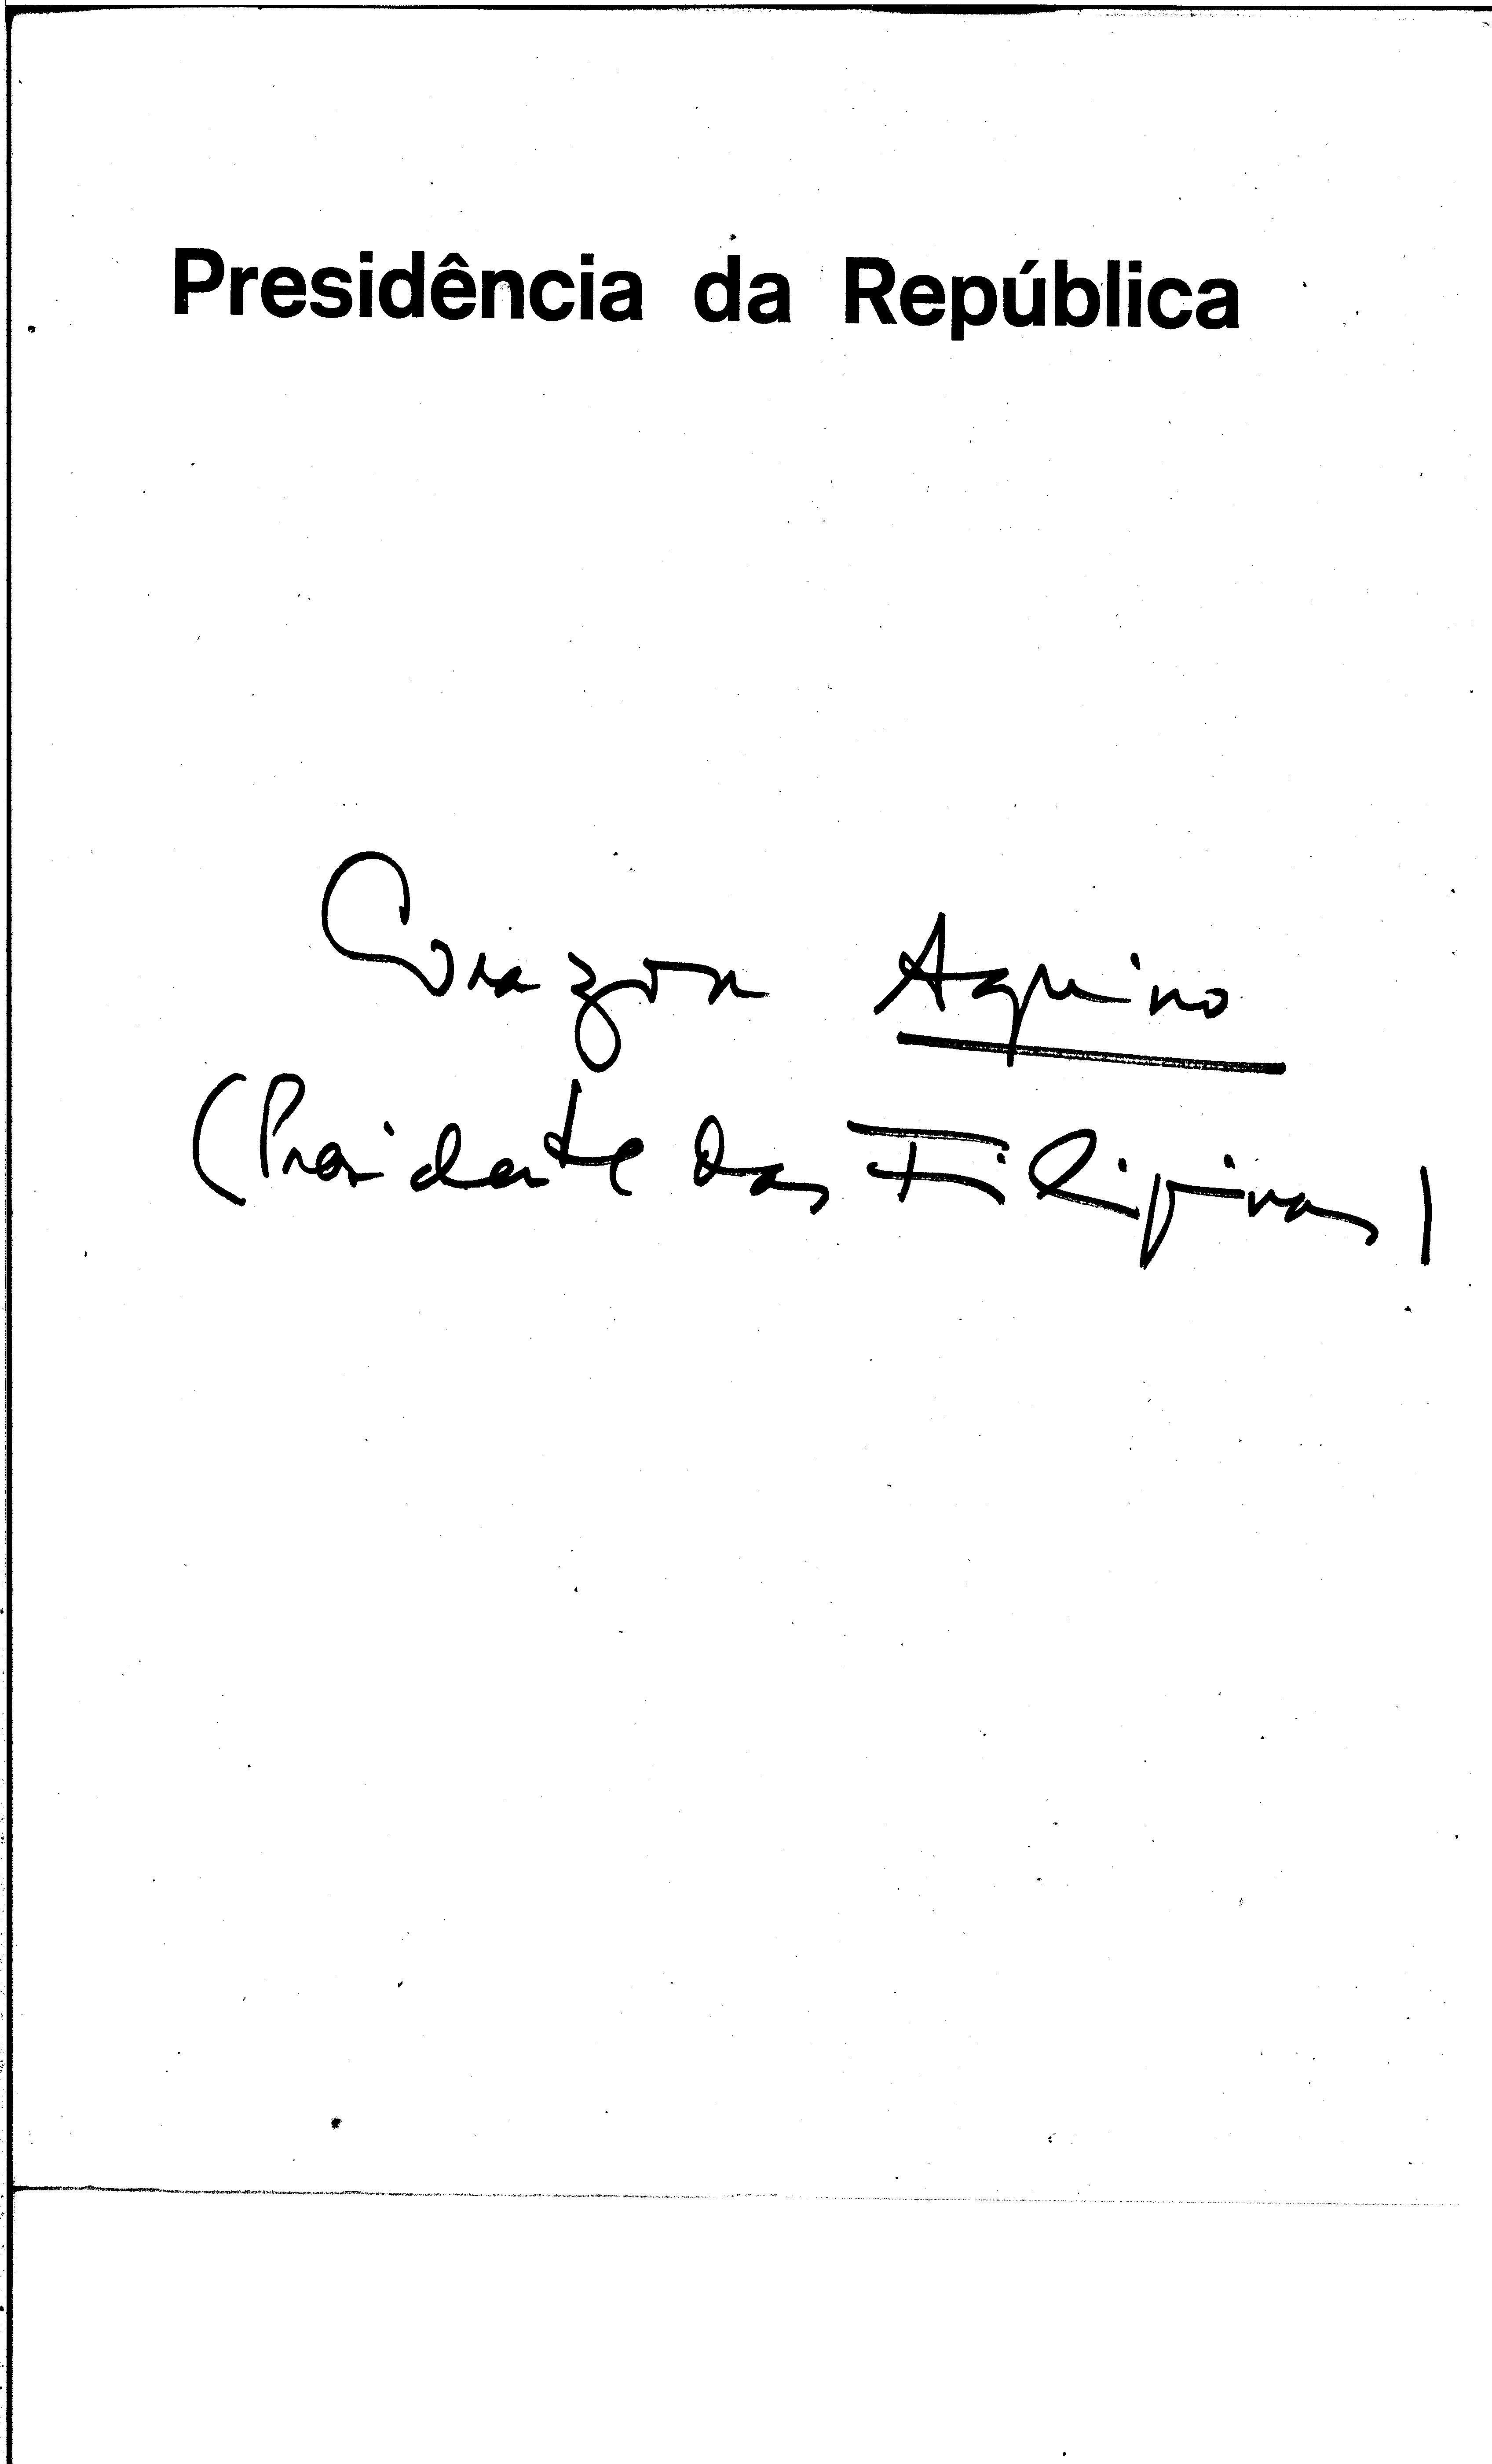 Presidência da República
Corazon Aquino
(Presidente das Filipinas)